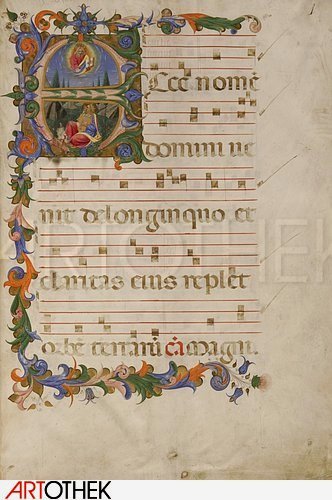 Ecce nomē
domini ue
nit delonginquo et
ARTOTHEK
claritas eius replet
orbē terrarū
ARTOTHEK